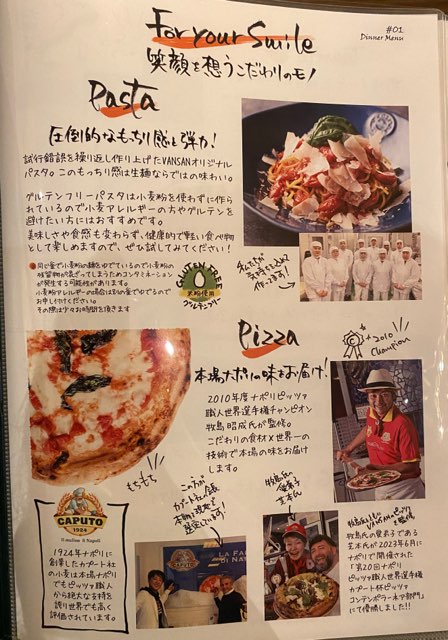 For your Smile
#01
Dinner Menu
笑顔を想うこだわりのモノ
Pasta
圧倒的なもっちり感と弾力!
試行錯誤を繰り返し作り上げたVANSANオリジナル
パスタ。このもっちり感は生麺ならではの味わい。
グルテンフリーパスタは小麦粉を使わずに作ら
れているので小麦アレルギーの方やグルテンを
避けたい方にはおすすめです。
美味しさや食感も変わらず、健康的で軽い食べ物
として楽しめますので、ぜひ試してみてください!
同じ釜で小麦粉の麺をゆでているので小麦粉の
残留物が混ざってしまうためコンタミネーション
が発生する可能性があります。
小麦粉アレルギーの場合は別の釜でゆでるので
お申し付けください。
その際は少々お時間を頂きます
GLUTEN FREE
米粉使用
グルテンフリー
私たちが
気持ちを込めて
作ってます!
Pizza
2010
Champion
本場ナポリの味をお届け!
2010年度ナポリピッツァ
職人世界選手権チャンピオン
牧島昭成氏が監修。
こだわりの食材×世界一の
技術で本場の味をお届け
します。
もちもち
CAPUTO
1924
Il mulino di Napoli
1924年ナポリに
創業したカプート社
の小麦は本場ナポリ
でもピッツァ職人
から絶大な支持を
誇り世界でも高く
評価されています。
CAPUTO
LA FA
DI NA
牧島氏の
愛弟子
芝本氏
牧島氏の愛弟子である
芝本氏が2023年6月に
ナポリで開催された
「第20回ナポリ
ピッツァ職人世界選手権
カプート杯ピッツァ
コンテンポラーネア部門」
にて優勝しました!!